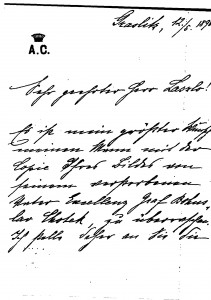 A.C.
Grodlitz, 12/5. 189
Sehr geehrter Herr Laszlo!
Es ist mein größter Wunsch
meinen Mann mit der
Copie Ihres Bildes von
seinem verstorbenen
Vater Excellenz Graf Bohus-
lav Chotek zu überraschen
Ich stelle daher an Sie die